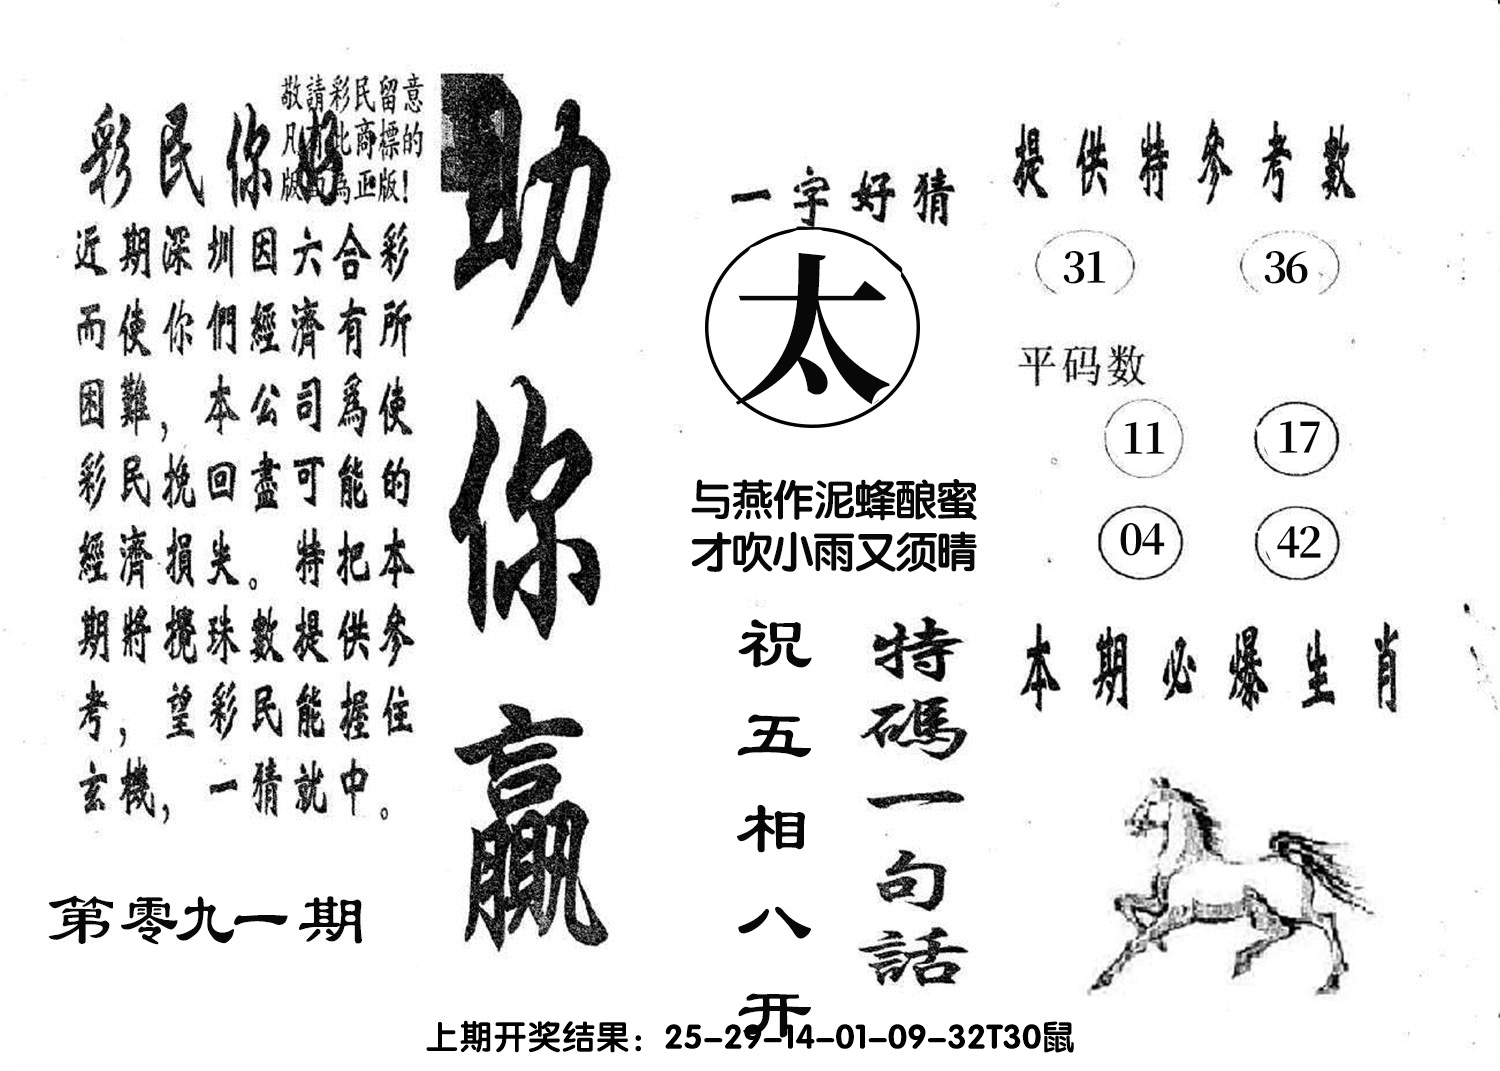 敬請彩民留意
凡有此商標的
版面為正版!
彩民你好
近期深圳因六合彩
而使你們經濟有所
困難，本公司爲使
彩民挽回盡可能的
經濟損失。特把本
期將攪珠數提供參
考，望彩民能握住
玄機，一猜就中。
第零九一期
助你贏
一字好猜
太
与燕作泥蜂酿蜜
才吹小雨又须晴
特碼一句話
祝五相八开
提供特參考數
31 36
平码数
11 17
04 42
本期必爆生肖
上期开奖结果：25-29-14-01-09-32T30鼠